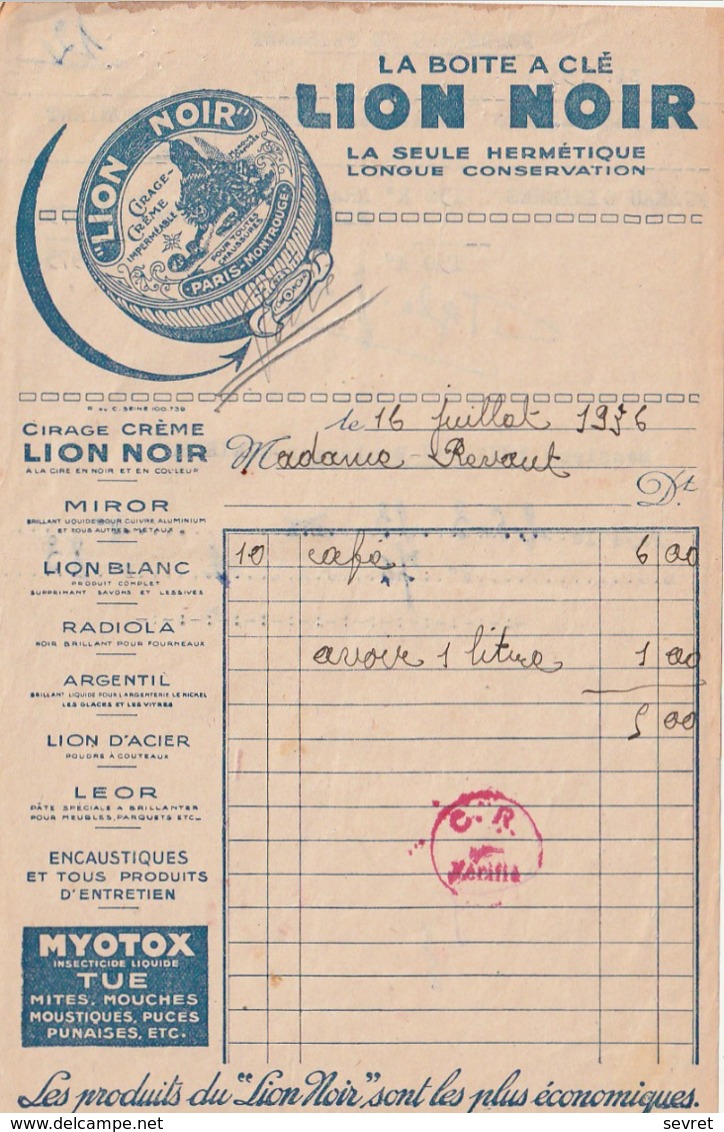 LA BOITE A CLÉ
LION NOIR
LA SEULE HERMÉTIQUE
LONGUE CONSERVATION
"LION NOIR"
CIRAGE-
CRÈME
IMPERMÉABLE
POUR TOUTES
CHAUSSURES
PARIS-MONTROUGE
R. du C. SEINE 100.739
CIRAGE CRÈME
LION NOIR
A LA CIRE EN NOIR ET EN COULEUR
le 16 juillet 1936
Madame Revaut
Dt
MIROR
BRILLANT LIQUIDE POUR CUIVRE, ALUMINIUM
ET TOUS AUTRES MÉTAUX
LION BLANC
PRODUIT COMPLET
SUPPRIMANT SAVONS ET LESSIVES
RADIOLA
NOIR BRILLANT POUR FOURNEAUX
ARGENTIL
BRILLANT LIQUIDE POUR L'ARGENTERIE LE NICKEL
LES GLACES ET LES VITRES
LION D'ACIER
POUDRE A COUTEAUX
LEOR
PÂTE SPÉCIALE A BRILLANTER
POUR MEUBLES, PARQUETS ETC...
ENCAUSTIQUES
ET TOUS PRODUITS
D'ENTRETIEN
MYOTOX
INSECTICIDE LIQUIDE
TUE
MITES, MOUCHES
MOUSTIQUES, PUCES
PUNAISES, ETC.
10 cafa 6 00
avoir 1 litre 1 00
5 00
C. R.
Vérifié
Les produits du "Lion Noir", sont les plus économiques.
www.delcampe.net
sevret